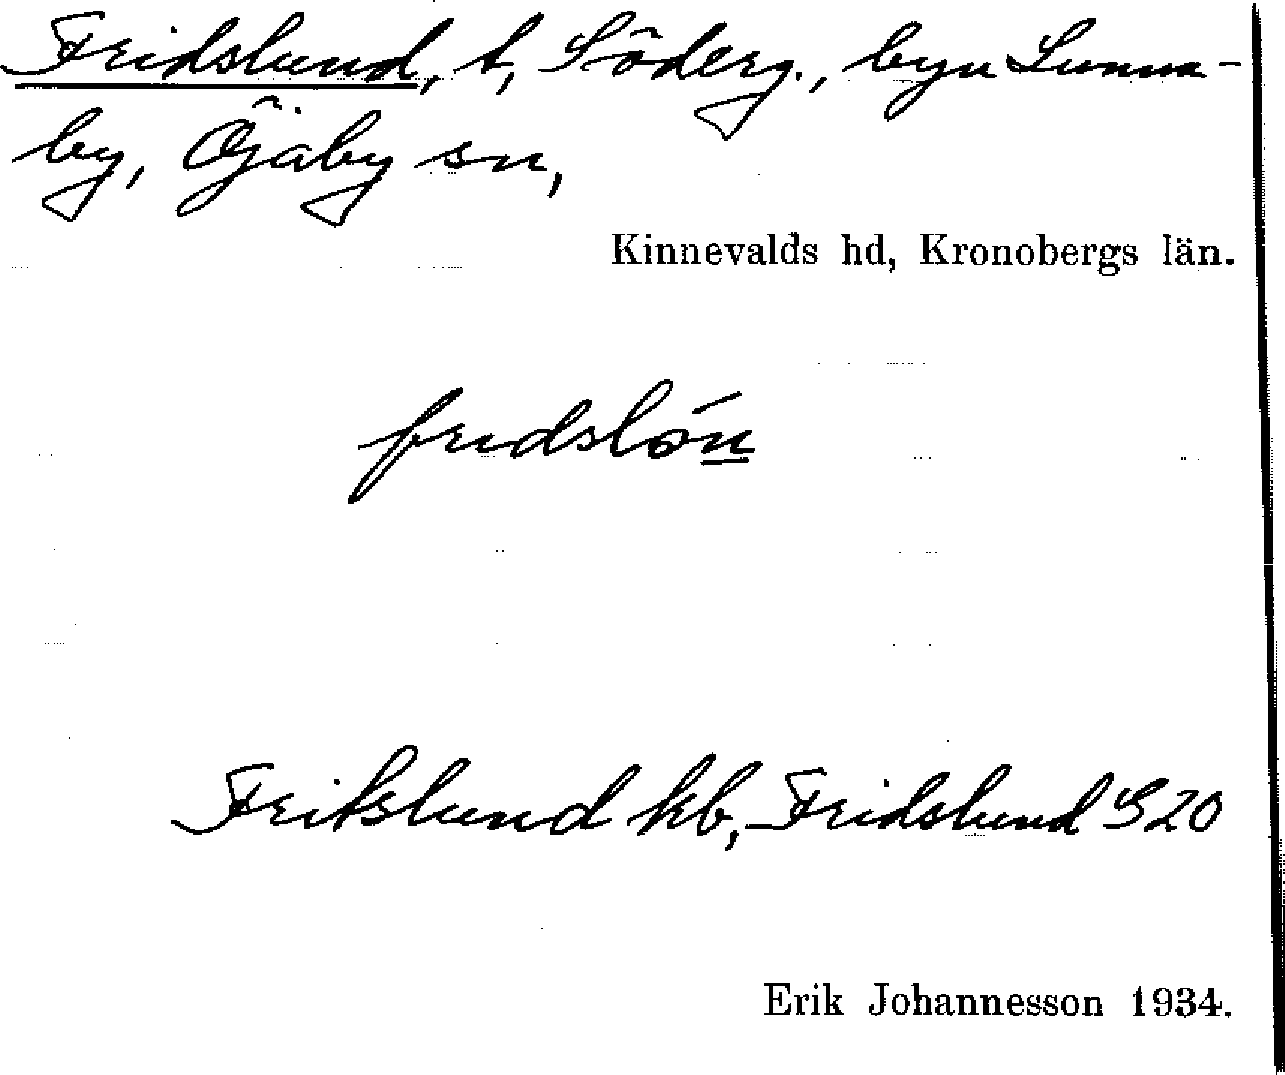 Fridslund, t, Söderg., byn Lunna-
by, Öjaby sn,
Kinnevalds hd, Kronobergs län.
fridslón
Frikslund kb, Fridslund S20
Erik Johannesson 1934.